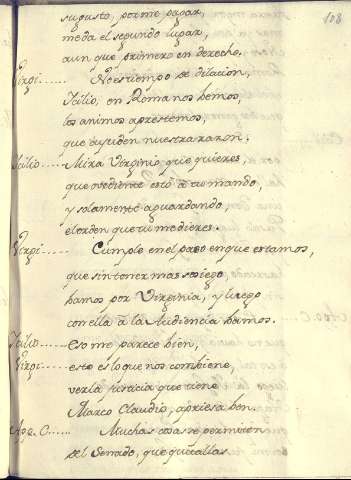 108
su gusto, por me pagar,
me da el segundo lugar,
aun que primero en derecho.
Virgi...... No es tiempo de dilacion,
Icilio, en Roma nos bemos,
los animos aprestemos,
que ayuden nuestra razon.
Icilio..... Mira Virginio que quieres,
que obediente estoi a tu mando,
y solamente aguardando,
el orden que tu me dieres.
Virgi..... Cumple en el paso en que estamos,
que sin tener mas sosiego
bamos por Virginia, y luego
con ella à la Audiencia bamos.
Icilio...... Eso me parece bien,
Virgi...... esto es lo que nos combiene,
verla justicia que tiene
Marco Claudio, apriesa ben.
Apo. C...... Muchas cosas se permiten
del Senado, que